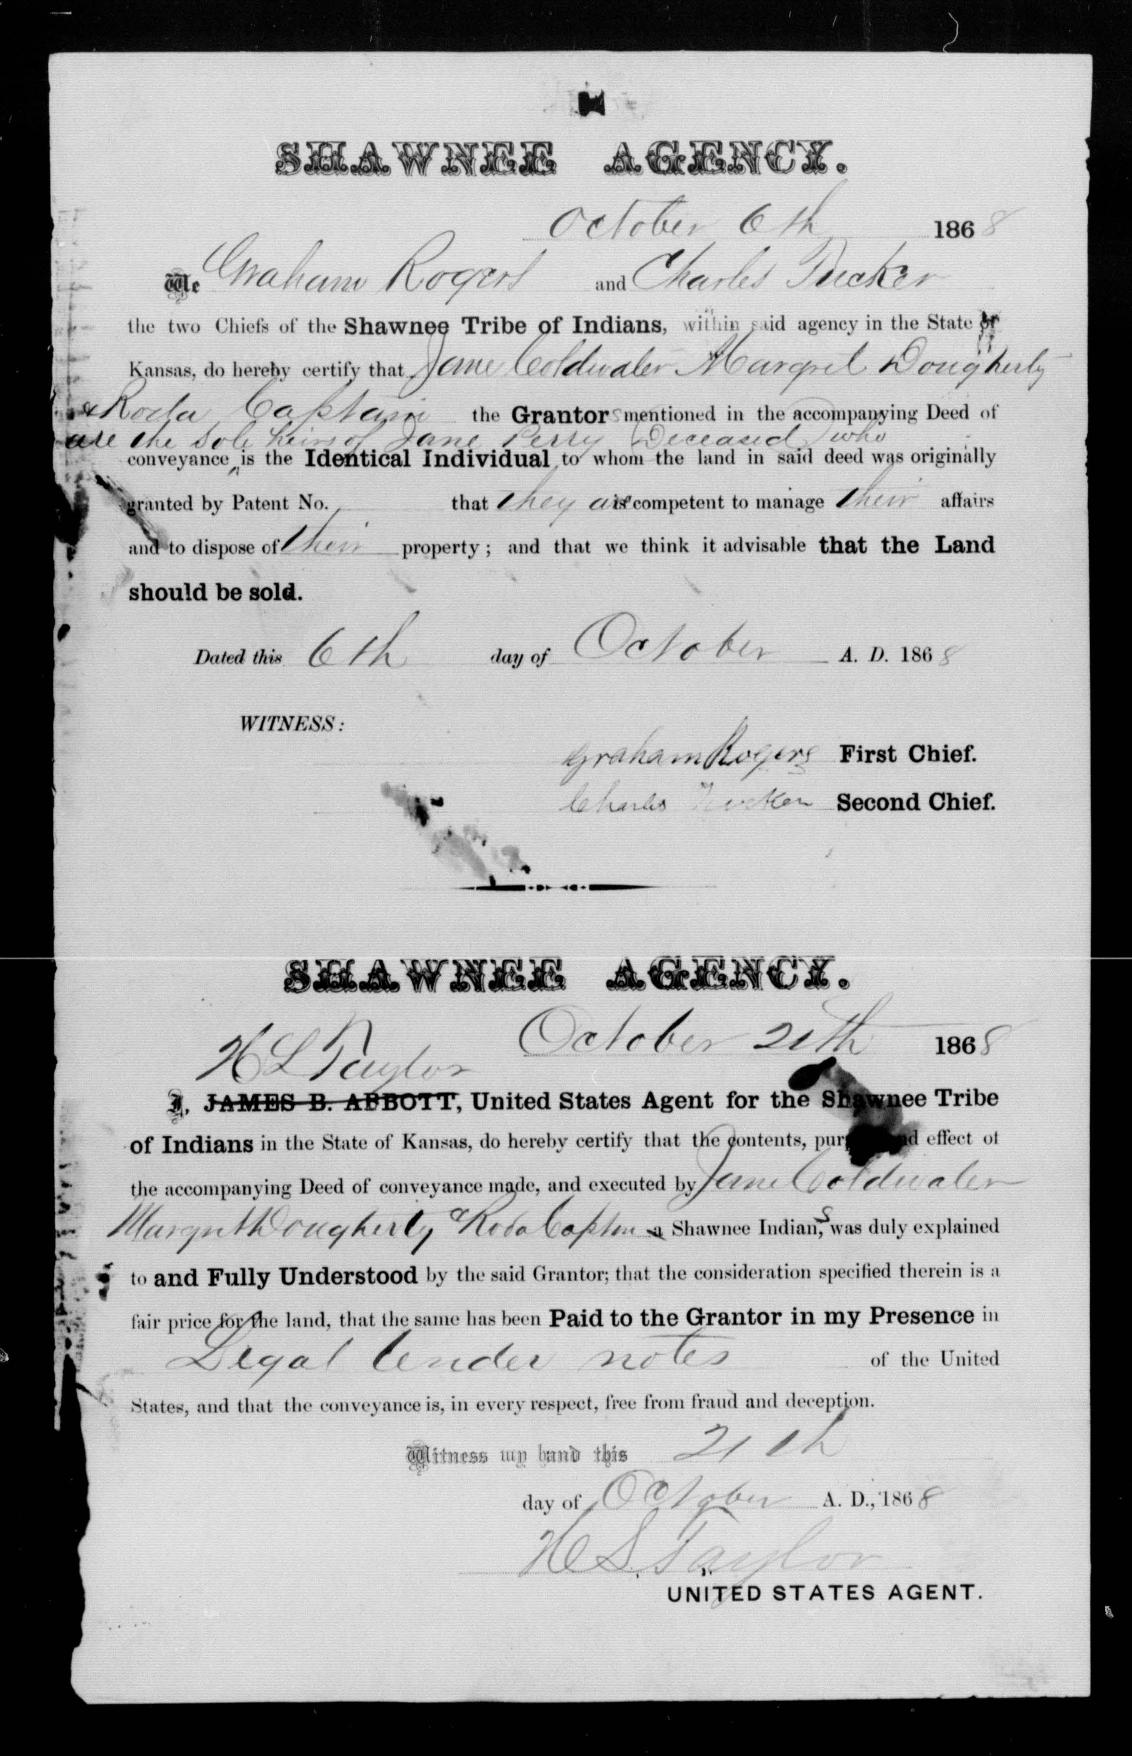 SHAWNEE AGENCY.
October 6th 1868
We Graham Rogers and Charles Tucker
the two Chiefs of the Shawnee Tribe of Indians, within said agency in the State of
Kansas, do hereby certify that Jane Coldwater Margret Dougherty
& Roda Captain the Grantors mentioned in the accompanying Deed of
are the Sole heirs of Jane Perry Deceased who
conveyance ‸ is the Identical Individual to whom the land in said deed was originally
granted by Patent No. that they are competent to manage their affairs
and to dispose of their property; and that we think it advisable that the Land
should be sold.
Dated this 6th day of October A. D. 1868
WITNESS:
Graham Rogers First Chief.
Charles Tucker Second Chief.
SHAWNEE AGENCY.
October 21th 1868
H L Taylor
I, JAMES B. ABBOTT, United States Agent for the Shawnee Tribe
of Indians in the State of Kansas, do hereby certify that the contents, purpose and effect of
the accompanying Deed of conveyance made, and executed by Jane Coldwater
Margret Dougherty & Roda Captain a Shawnee Indians, was duly explained
to and Fully Understood by the said Grantor; that the consideration specified therein is a
fair price for the land, that the same has been Paid to the Grantor in my Presence in
Legal tender notes of the United
States, and that the conveyance is, in every respect, free from fraud and deception.
Witness my hand this 21th
day of October A. D., 1868
H L Taylor
UNITED STATES AGENT.